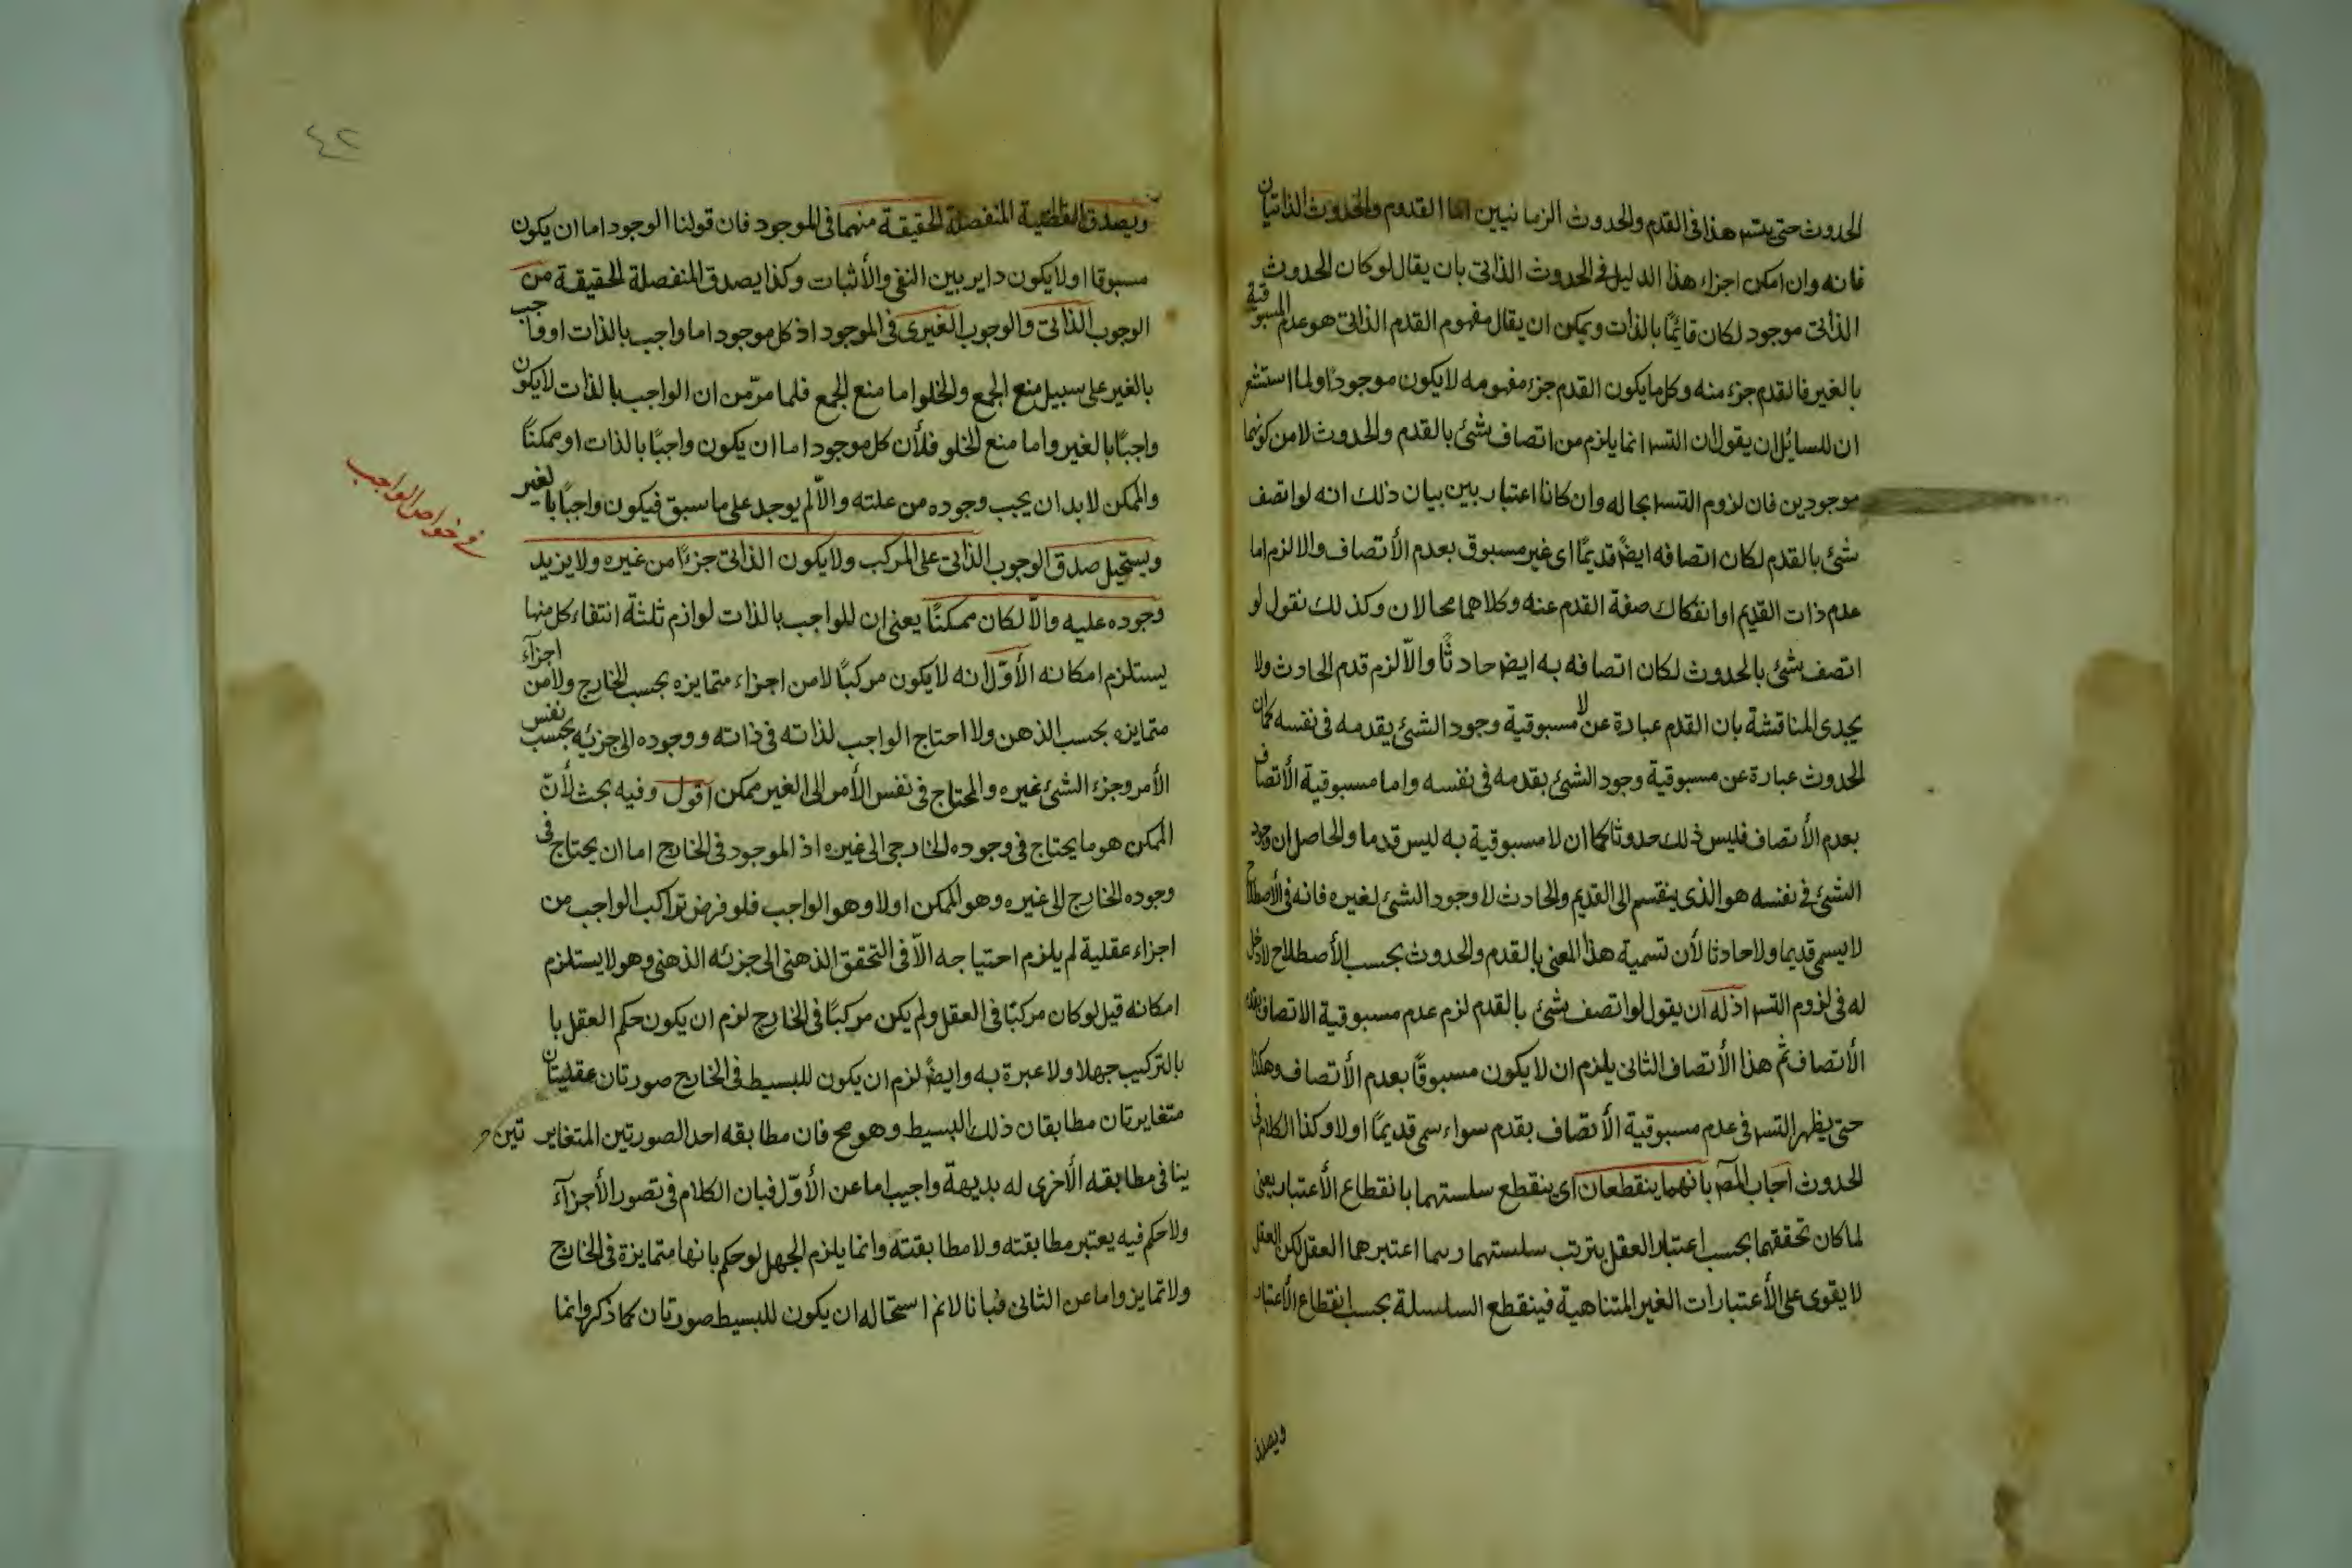 الحدوث حتى يتسم هذا فى القدم والحدوث الزمانيين اما القدوم والحدوث الذاتيان
فانه وان امكن اجزاء هذا الدليل فى الحدوث الذاتى بان يقال لو كان الحدوث
الذاتى موجود لكان قايمًا بالذات ويمكن ان يقال مفهوم القدم الذاتى هو عدم المسبوقية
بالغير فالقدم جزء منه وكل ما يكون القدم جزء مفهومه لا يكون موجودا ولما استشعر
ان للسائل ان يقول ان التسم انما يلزم من اتصاف شئ بالقدم والحدوث لا من كونهما
موجودين فان لزوم التسم بحاله وان كانا اعتباريين بيان ذلك انه لو اتصف
شئ بالقدم لكان اتصافه ايضً قديمًا اى غير مسبوق بعدم الأتصاف والا لزم اما
عدم ذات القديم او انفكاك صفة القدم عنه وكلاهما محالان وكذلك نقول لو
اتصف شئ بالحدوث لكان اتصافه به ايضً حادثًا والّا لزم قدم الحادث ولا
يجدى المناقشة بان القدم عبارة عن لا مسبوقية وجود الشئ يقدمه فى نفسه كما ان
الحدوث عبارة عن مسبوقية وجود الشئ بقدمه فى نفسه واما مسبوقية الأتصاف
بعدم الأتصاف فليس ذلك حدوثا كما ان لا مسبوقية به ليس قدما والحاصل ان وجود
الشئ فى نفسه هو الذى ينقسم الى القديم والحادث لا وجود الشئ لغيره فانه فى الأصطلاح
لا يسمى قديما ولا حادثا لأن تسمية هذا المعنى بالقدم والحدوث بحسب الأصطلاح لا دخل
له فى لزوم التسم اذ له ان يقول لو اتصف شئ بالقدم لزم عدم مسبوقية الاتصاف بعدم
الأتصاف ثم هذا الأتصاف الثانى يلزم ان لا يكون مسبوقًا بعدم الأتصاف وهكذا
حتى يظهر التسم فى عدم مسبوقية الأتصاف بقدم سواء سمى قديمًا اولا وكذا الكلام فى
الحدوث اجاب المصّ بانهما ينقطعان اى ينقطع سلستهما بانقطاع الأعتبار يعنى
لما كان تحققهما بحسب اعتبار العقل يترتب سلستهما ربما اعتبرها العقل لكن العقل
لا يقوى على الأعتبارات الغير المتناهية فينقطع السلسلة بحسب انقطاع الأعتبار
ويصدق
٤٢
ويصدق القضية المنفصلة الحقيقة منهما فى الموجود فان قولنا الوجود اما ان يكون
مسبوقا اولا يكون داير بين النفى والأثبات وكذا يصدق المنفصلة الحقيقة من
الوجوب الذاتى والوجوب الغيرى فى الموجود اذ كل موجود اما واجب بالذات او واجب
بالغير على سبيل منع الجمع والخلو اما منع الجمع فلما مرّ من ان الواجب بالذات لا يكون
واجبًا بالغير واما منع الخلو فلأن كل موجود اما ان يكون واجبًا بالذات او ممكنًا
والممكن لا بد ان يجب وجوده من علته والّا لم يوجد على ما سبق فيكون واجبًا بالغير
فى خواص الواجب
ويستحيل صدق الوجوب الذاتى على المركب ولا يكون الذاتى جزءًا من غيره ولا يزيد
وجوده عليه والّا لكان ممكنًا يعنى ان للواجب بالذات لوازم ثلثة انتفاء كل منها
يستلزم امكانه الأوّل انه لا يكون مركبًا لا من اجزاء متمايزه بحسب الخارج ولا من اجزآء
متمايزه بحسب الذهن ولا احتاج الواجب لذاته فى ذاته ووجوده الى جزئه بحسب نفس
الأمر وجزء الشئ غيره والمحتاج فى نفس الأمر الى الغير ممكن اقول وفيه بحث لأنّ
الممكن هو ما يحتاج فى وجوده الخارجى الى غيره اذ الموجود فى الخارج اما ان يحتاج فى
وجوده الخارج الى غيره وهو الممكن اولا وهو الواجب فلو فرض تراكب الواجب من
اجزاء عقلية لم يلزم احتياجه الّا فى التحقق الذهنى الى جزئه الذهنى وهو لا يستلزم
امكانه قيل لو كان مركبًا فى العقل ولم يكن مركبًا فى الخارج لزم ان يكون حكم العقل با
بالتركيب جهلا ولا عبرة به وايضً لزم ان يكون للبسيط فى الخارج صورتان عقليتان
متغايرتان مطابقان ذلك البسيط وهو مح فان مطابقه احد الصورتين المتغاير تين
ينافى مطابقه الأخرى له بديهة واجيب اما عن الأوّل فبان الكلام فى تصور الأجزآء
ولا حكم فيه يعتبر مطابقته ولا مطابقته وانما يلزم الجهل لو حكم بانها متمايزة فى الخارج
ولا تمايز واما عن الثانى فبانا لا نم استحاله ان يكون للبسيط صورتان كما ذكروا انما